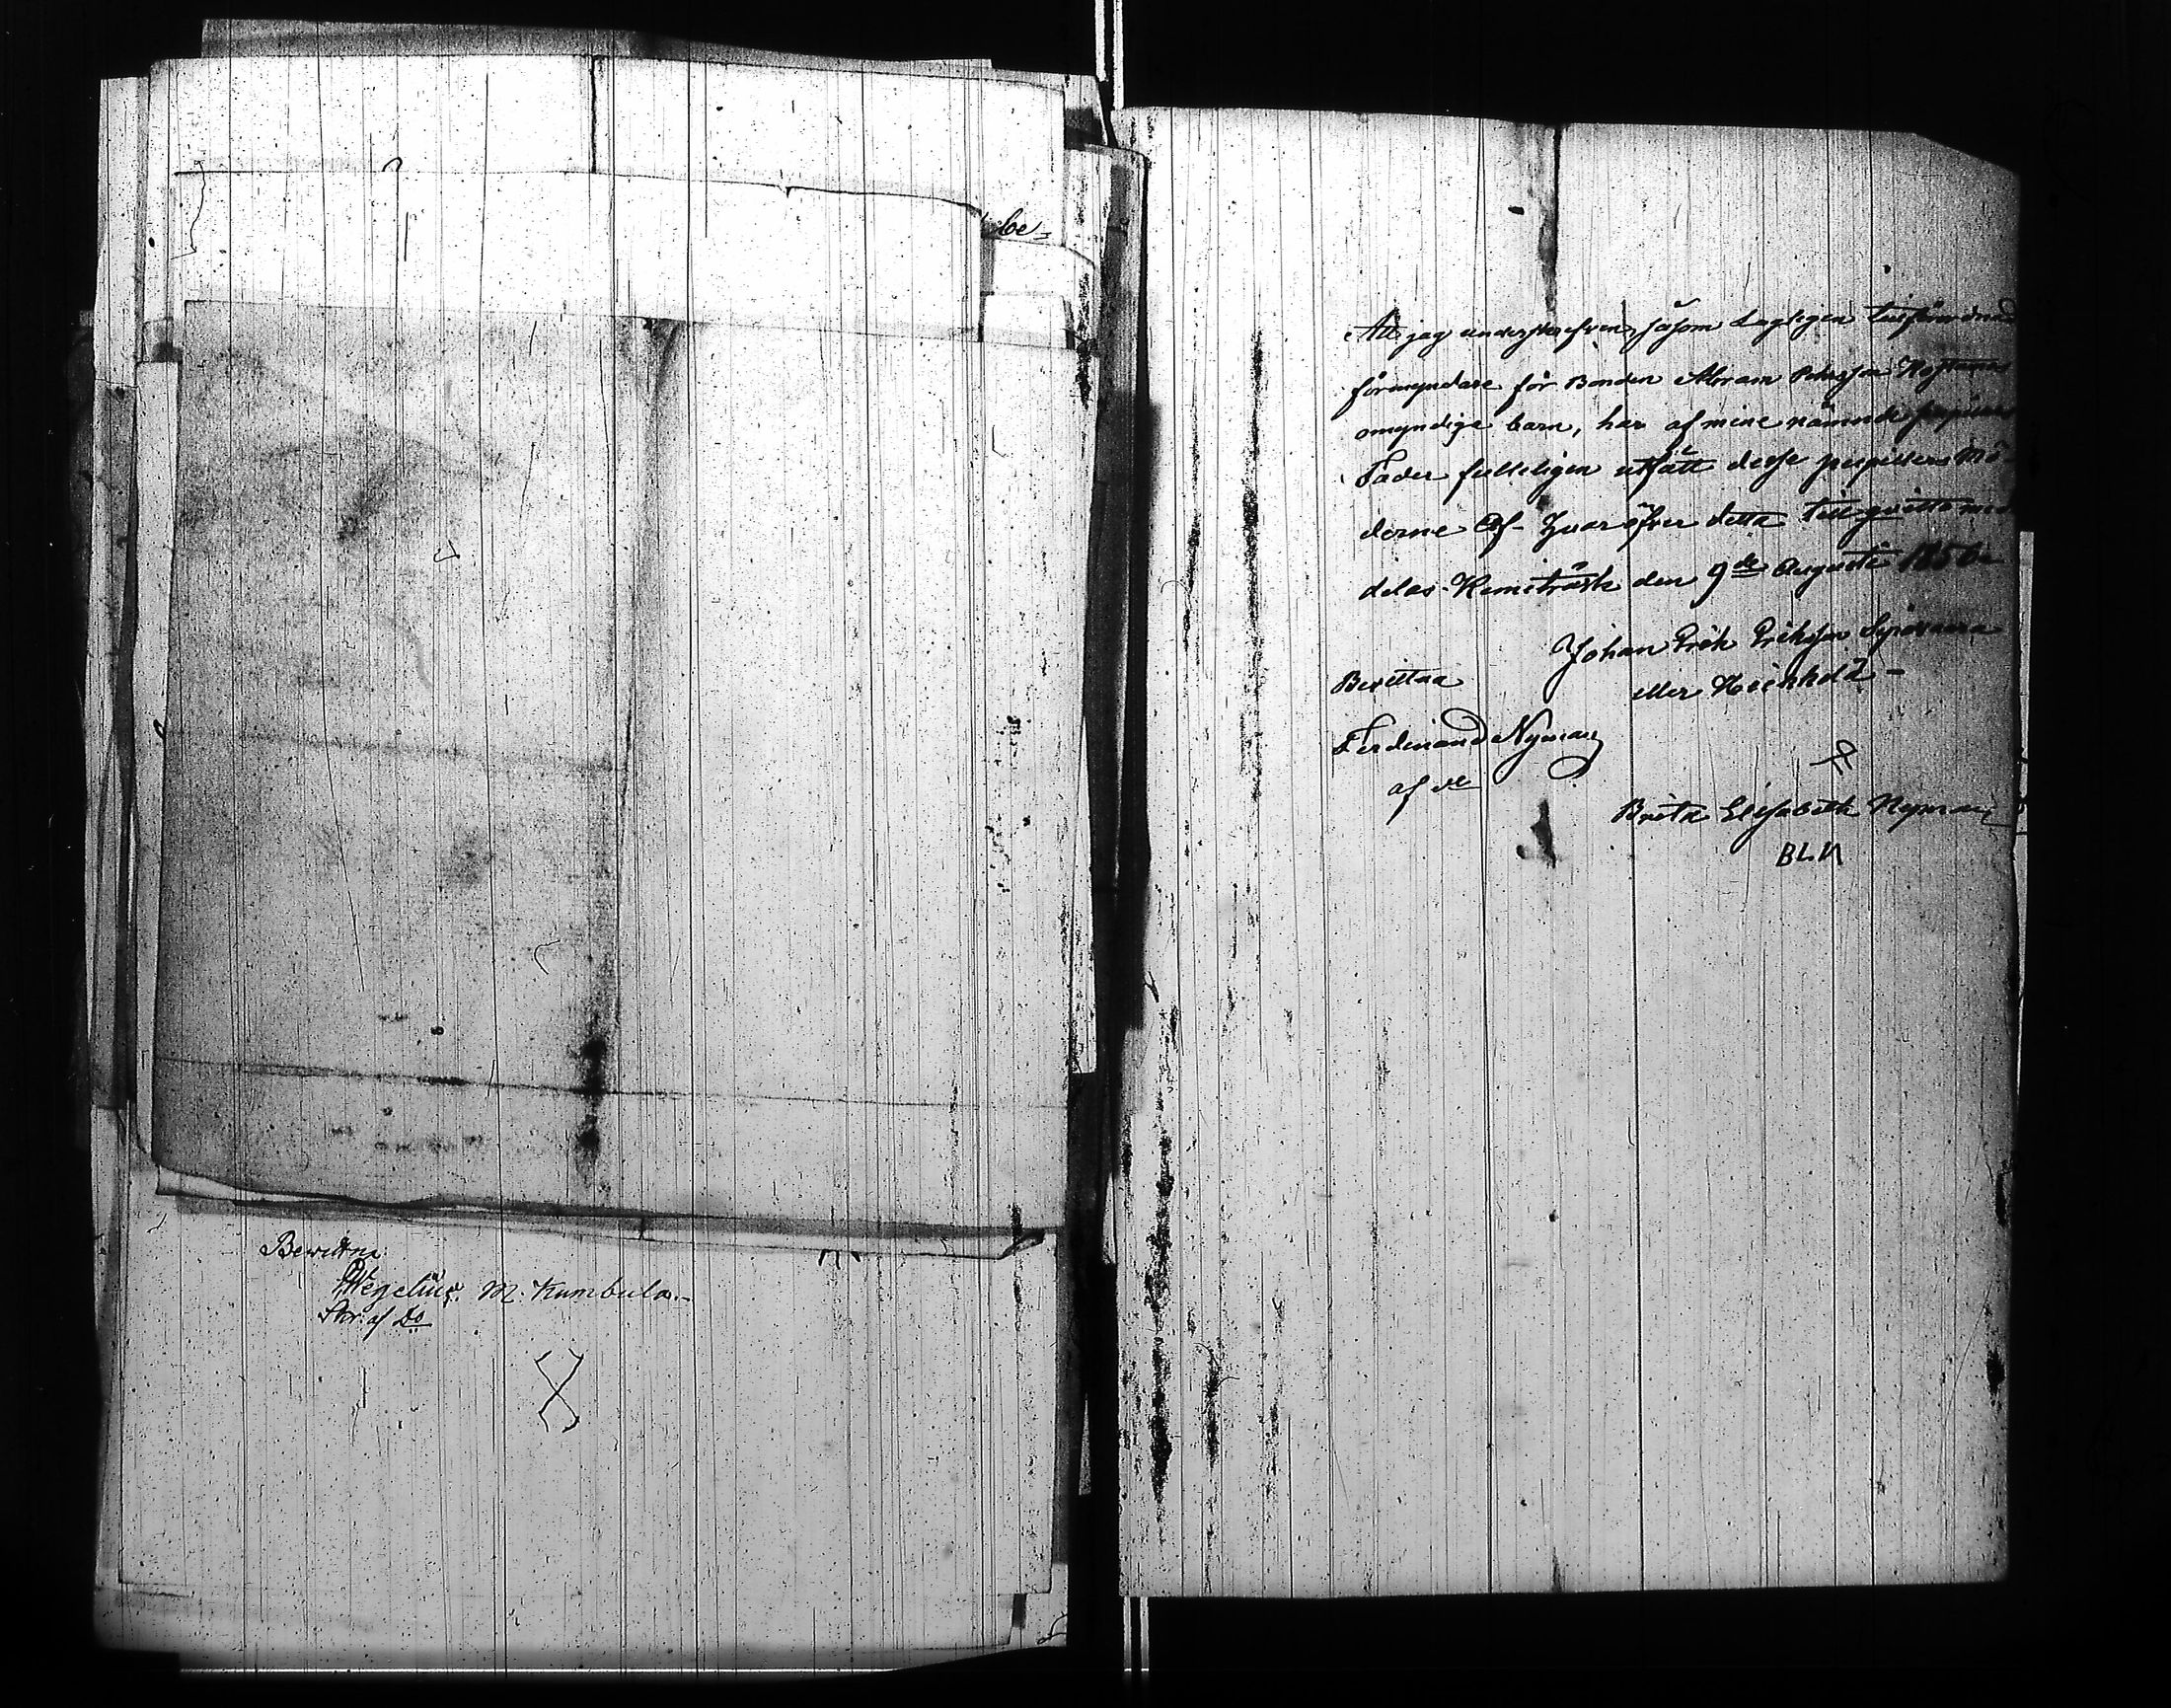 be=
Bewittna:
Wegelius. M. Kumbula.-
Skr. af Do
Att jag underskrefven, såsom Lagligen tillförordnad
förmyndare för Bonden Abram Persson
omyndige barn, har af mine nämnde pupillers
Fader fulleligen utfått desse pupillers Mö-
derne Arf- hvaröfver detta till qvitto med
delas. Kemiträsk den 9de Augusti 1856
Johan Erik Eriksson
eller Heikkilä -
Bevittna
Ferdinand Nyman
af do
Brita Elisabeth Nyman
BLN